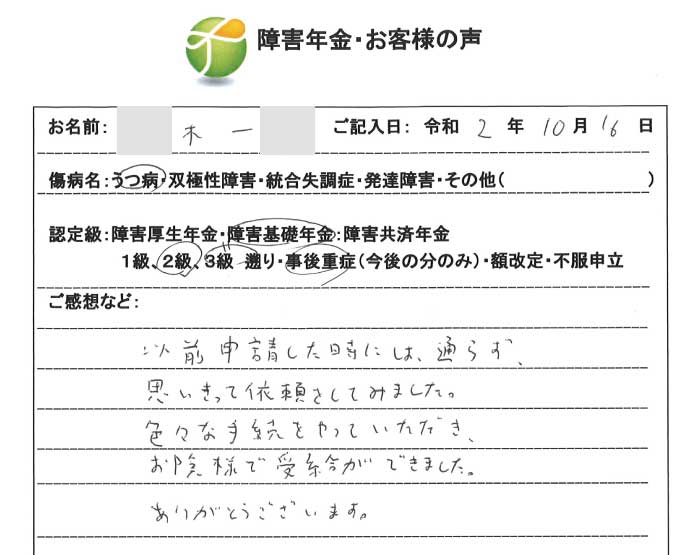 障害年金・お客様の声
お名前: 木 一 ご記入日: 令和 2 年 10 月 16 日
傷病名:うつ病・双極性障害・統合失調症・発達障害・その他( )
認定級:障害厚生年金・障害基礎年金:障害共済年金
1級、2級、3級 遡り・事後重症(今後の分のみ)・額改定・不服申立
ご感想など:
以前申請した時には、通らず、
思いきって依頼をしてみました。
色々な手続をやっていただき、
お陰様で受給ができました。
ありがとうございます。